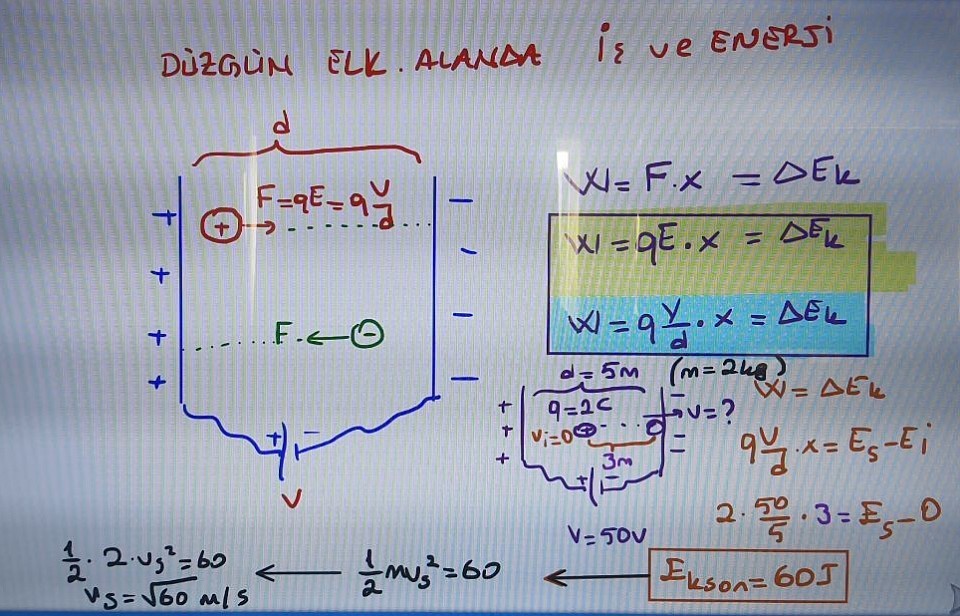 DÜZGÜN ELK. ALANDA İş ve ENERJİ
d
+ F=qE=q V/d
F
+ -
V
W = F.x = ΔEk
W = qE.x = ΔEk
W = q V/d . x = ΔEk
d = 5m (m = 2kg)
q = 2C
Vi=0 + υ=?
3m
+ -
V = 50V
W = ΔEk
q V/d . x = Es - Ei
2 . 50/5 . 3 = Es - 0
Ekson = 60J
1/2 mυs² = 60
1/2 . 2 . υs² = 60
υs = √60 m/s